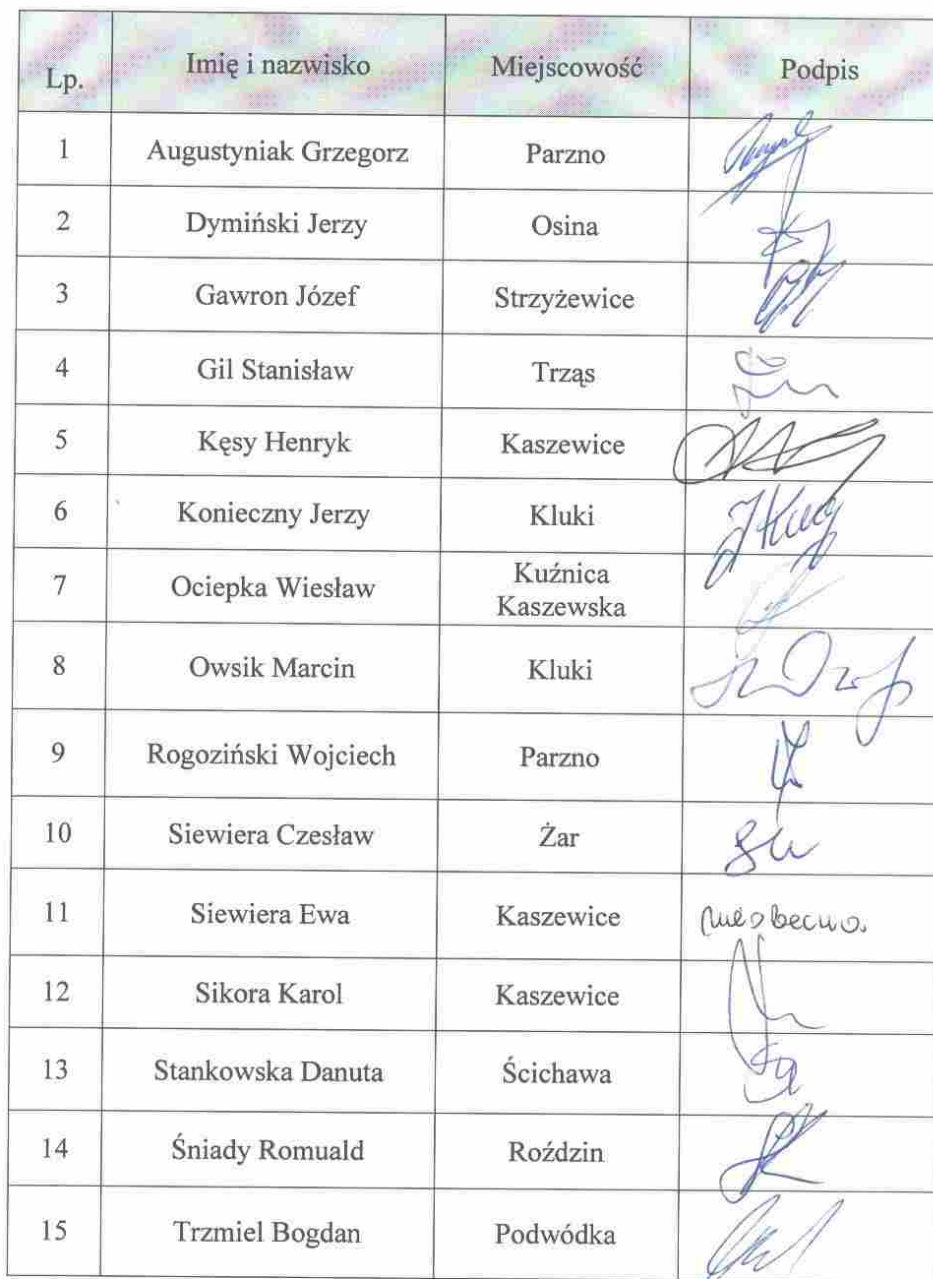 Lp. Imię i nazwisko Miejscowość Podpis
1 Augustyniak Grzegorz Parzno
2 Dymiński Jerzy Osina
3 Gawron Józef Strzyżewice
4 Gil Stanisław Trząs
5 Kęsy Henryk Kaszewice
6 Konieczny Jerzy Kluki
7 Ociepka Wiesław Kuźnica
Kaszewska
8 Owsik Marcin Kluki
9 Rogoziński Wojciech Parzno
10 Siewiera Czesław Żar
11 Siewiera Ewa Kaszewice nieobecna
12 Sikora Karol Kaszewice
13 Stankowska Danuta Ścichawa
14 Śniady Romuald Roździn
15 Trzmiel Bogdan Podwódka